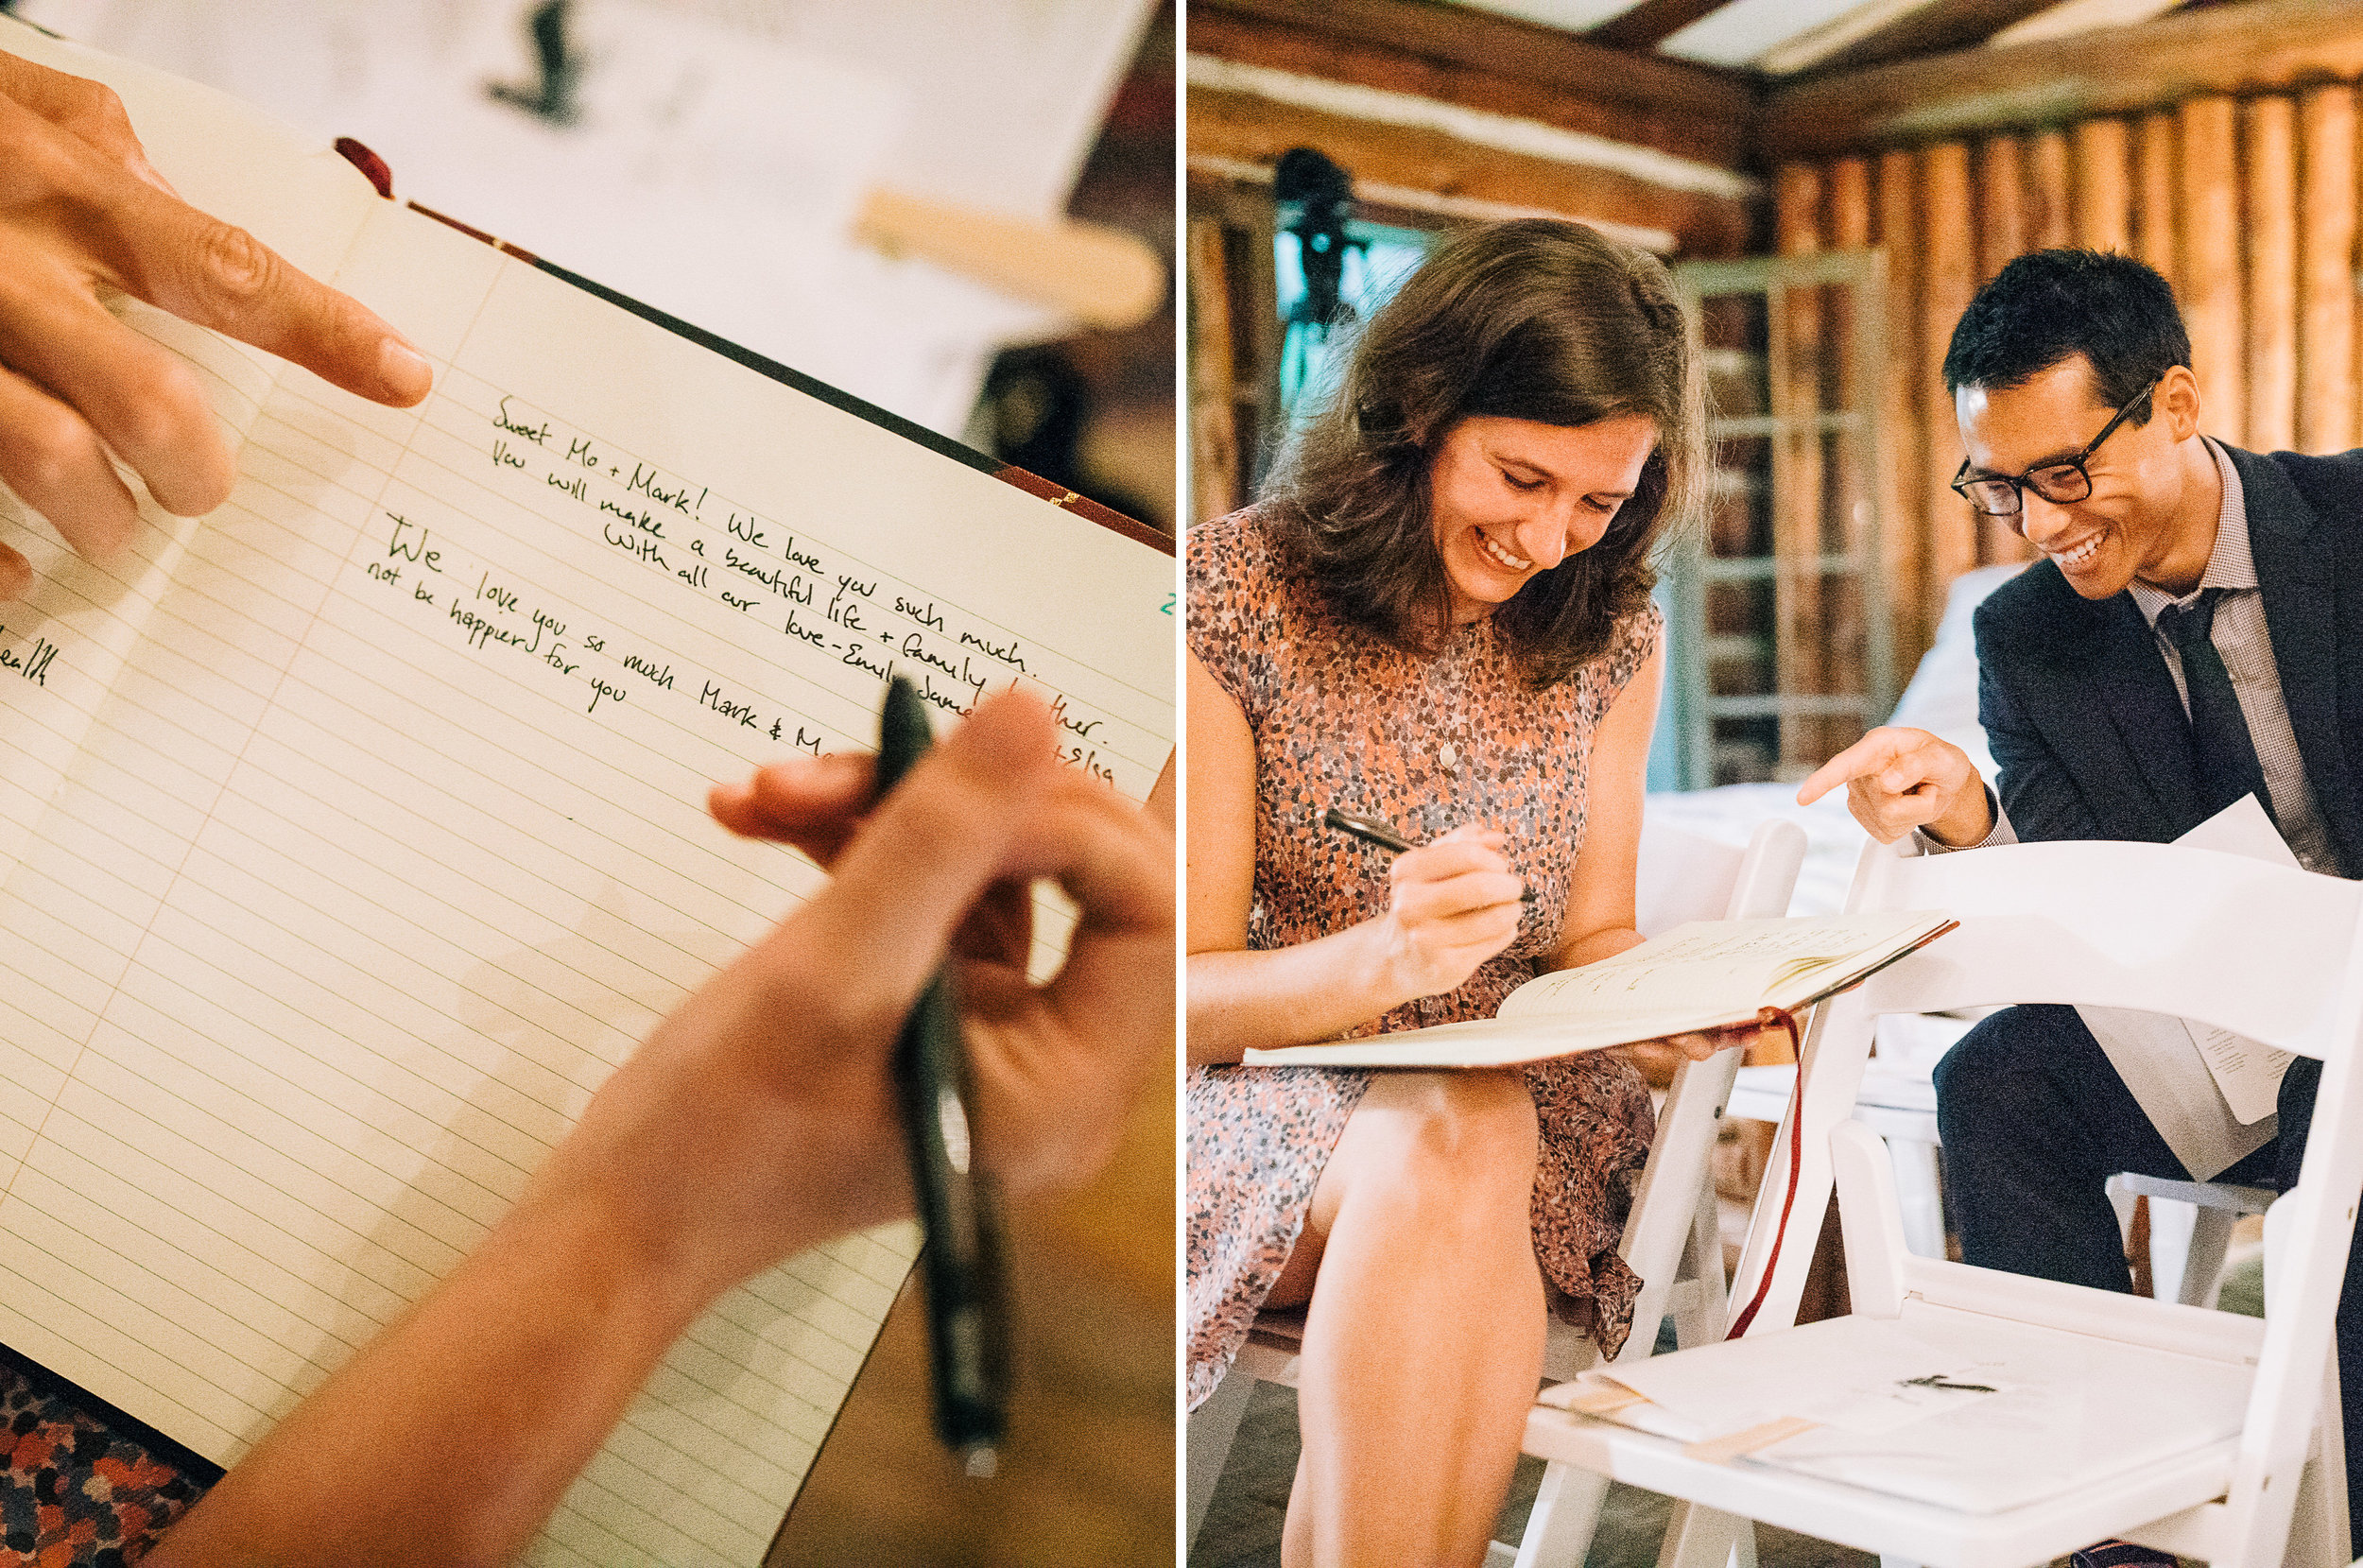 Sweet Mo + Mark! We love you such much.
You will make a beautiful life + family
With all our love - Emily
We love you so much Mark &
not be happier for you